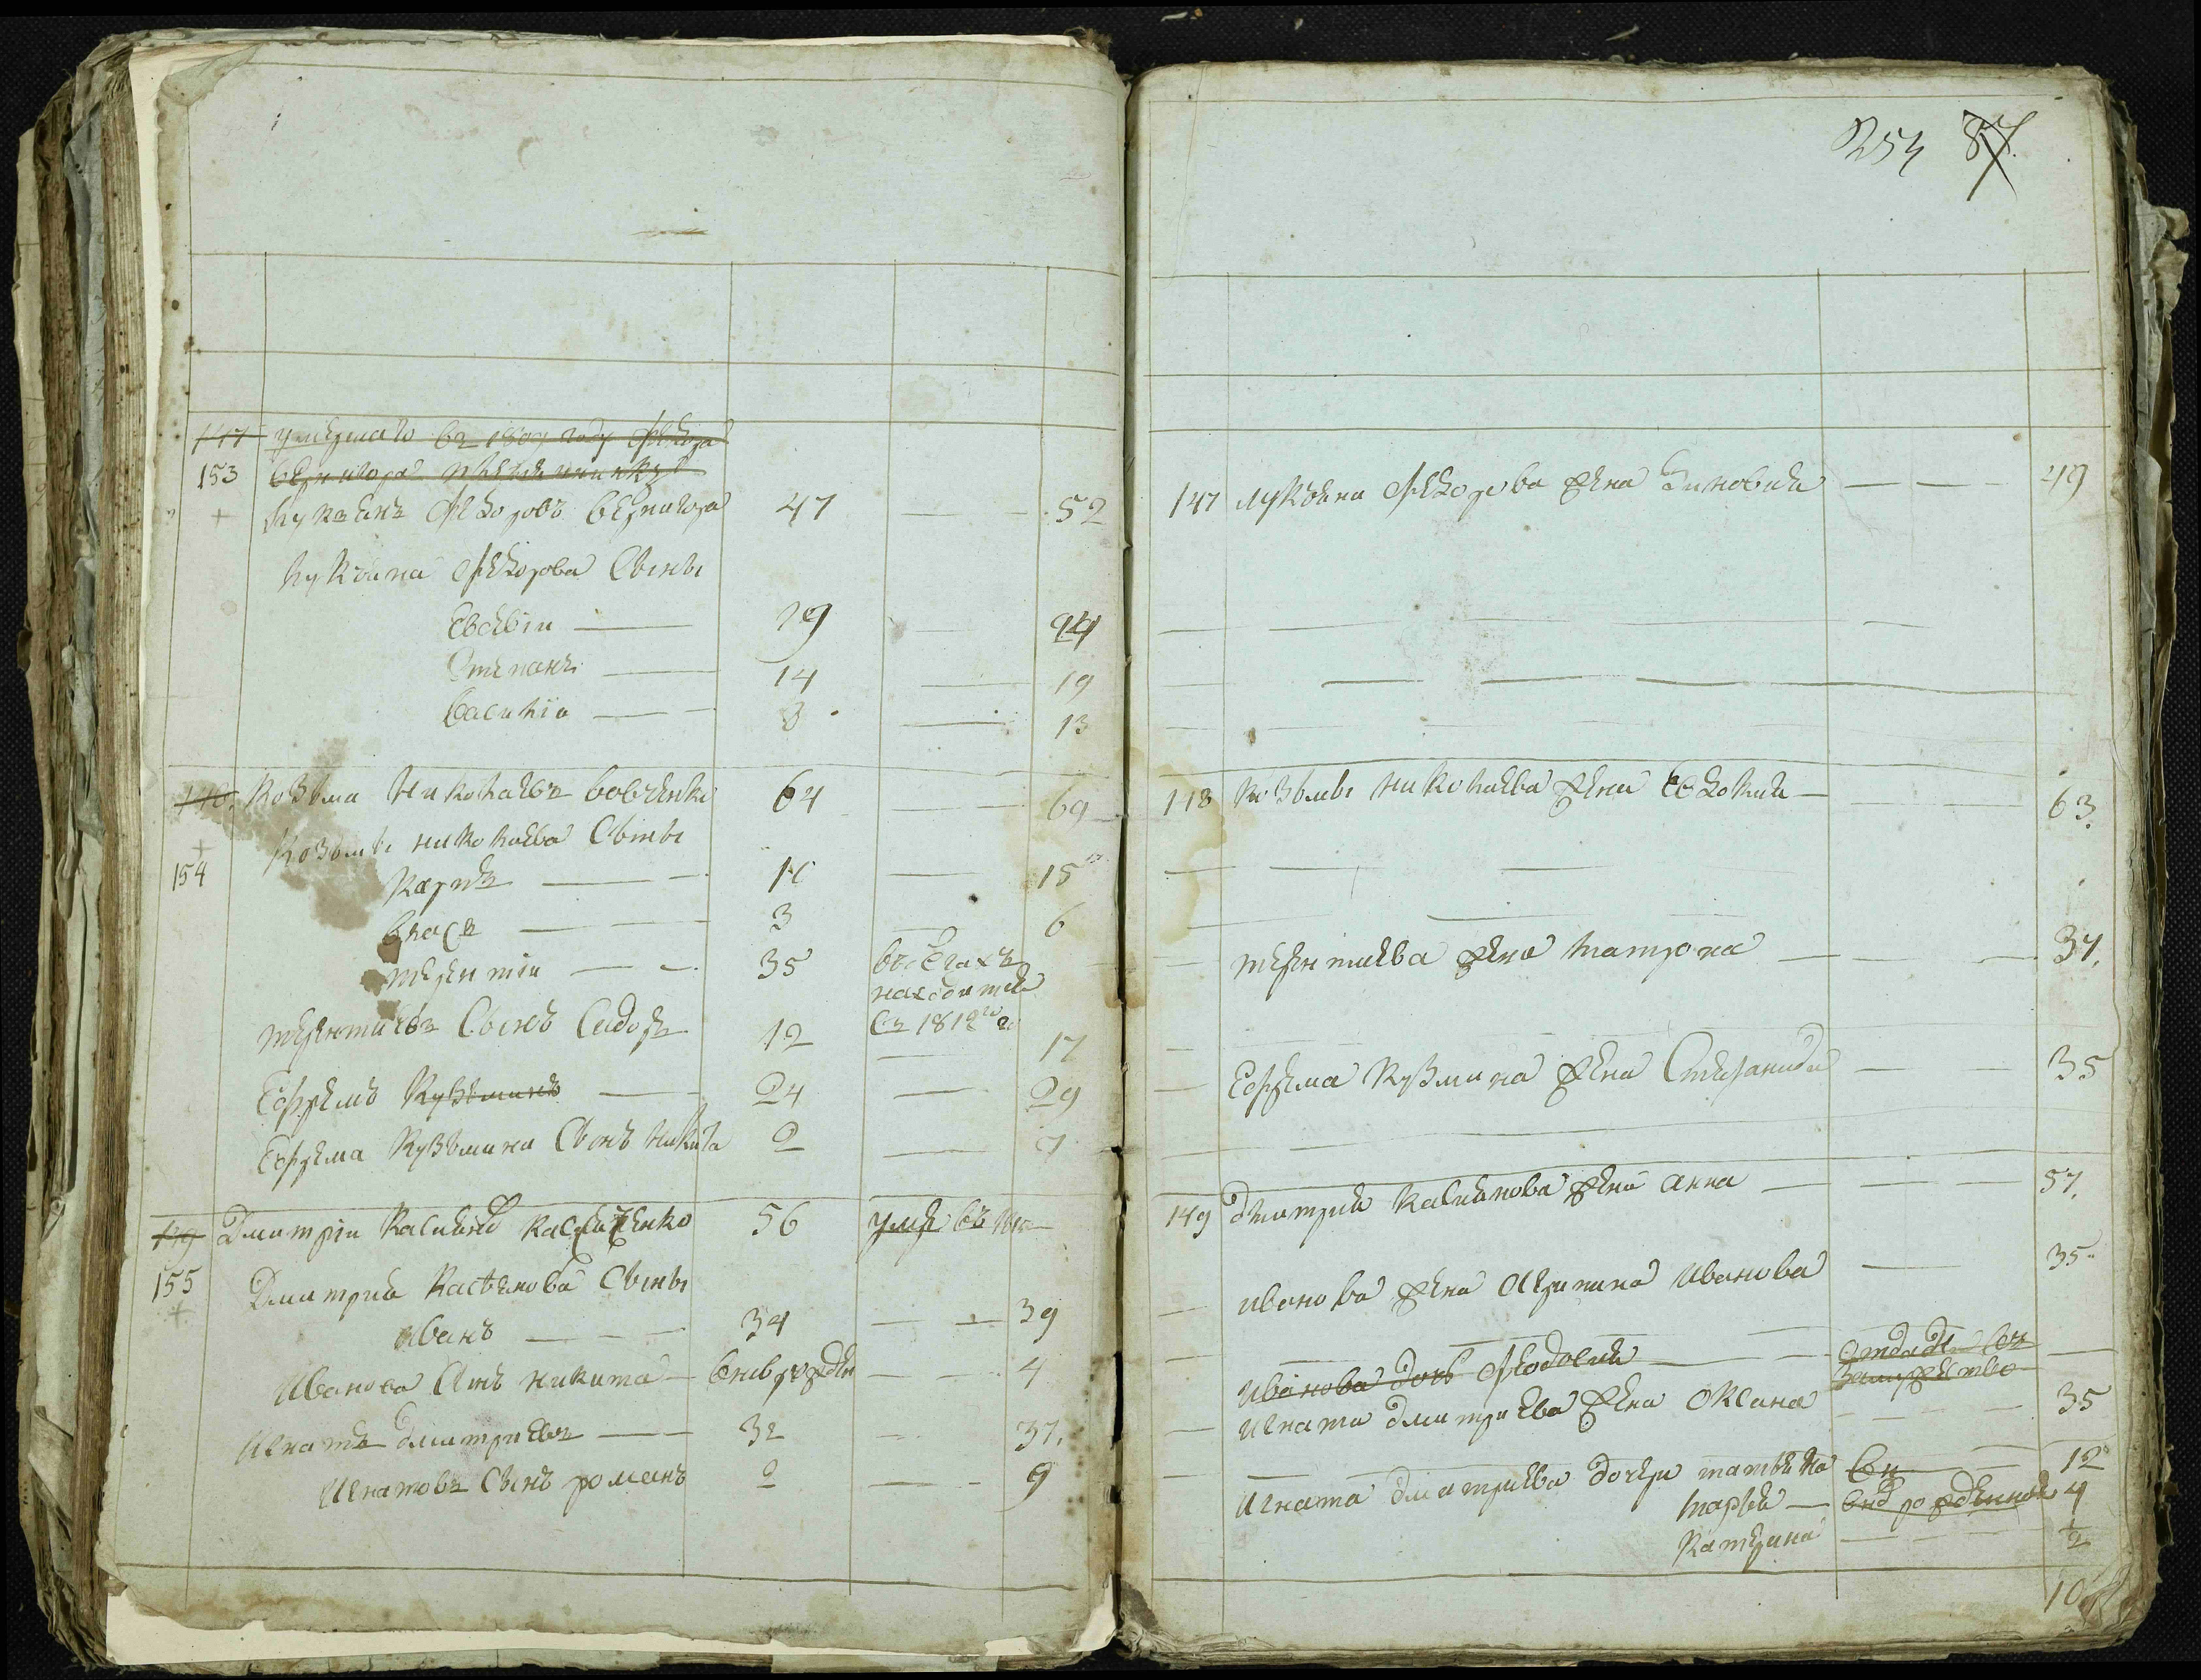 254 87
147 умершаго въ 180 году Федора
153 Вернигора
+ Лукьянъ Федоровъ Вернигора 47 — 52
Лукьяна Федорова Сыны
Евсевiи — 19 — 24
Степанъ — 14 — 19
Василiи — 8 — 13
148. Козьма Николаевъ Вовченко 64 — 69
+ Козьмы Николаева Сыны
154 Карпъ — 10 — 15
Власъ — 3 — 6
Терентiи — 35 въ бѣгахъ
находится
Терентиевъ Сынъ Сидоръ 12 съ 1812го го 17
Ефремъ Кузьминъ — 24 — 29
Ефрема Кузьмина Сынъ Никита 2 — 7
149 Дмитрiи Касияновъ Касияненко 56 уме въ
155 Дмитрия Касьянова Сыны
+ Иванъ — 34 — 39
Иванова Сынъ Никита — вновь рожден — 4
Игнатъ Дмитриевъ — 32 — 37.
Игнатовъ Сынъ Романъ 2 — 9
147 Лукьяна Федорова жена Зиновия — 49
148 Козьмы Николаева жена Евдокия — 63.
Терентиева жена Матрона — 37.
Ефрема Кузмина жена Степанида — 35
149 Дмитрия Касиянова жена Анна — 57.
Иванова жена Агрипина Иванова — 35
Иванова дочь Феодосия — отдана въ
замужество
Игната Дмитриева жена Оксана — 35
Игната Дмитриева дочери Татьяна 12
Марья — вновь рожденная 4
Катерина — ½
10